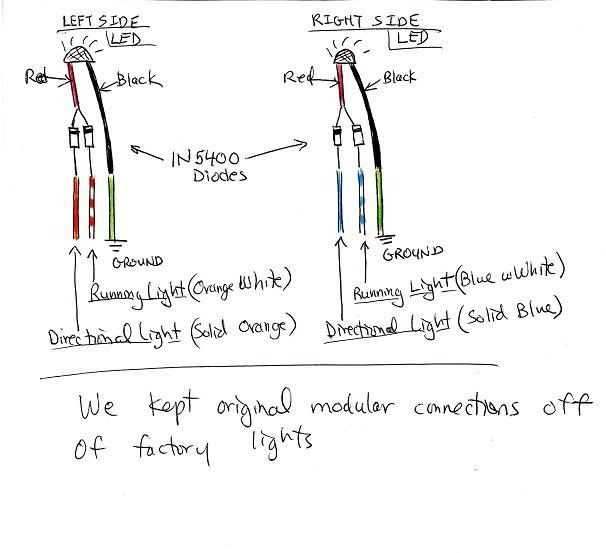 LEFT SIDE
LED
Red
Black
RIGHT SIDE
LED
Red
Black
IN5400
Diodes
GROUND
Running Light (Orange White)
Directional Light (Solid Orange)
GROUND
Running Light (Blue w White)
Directional Light (Solid Blue)
We kept original modular connections off
Of factory lights